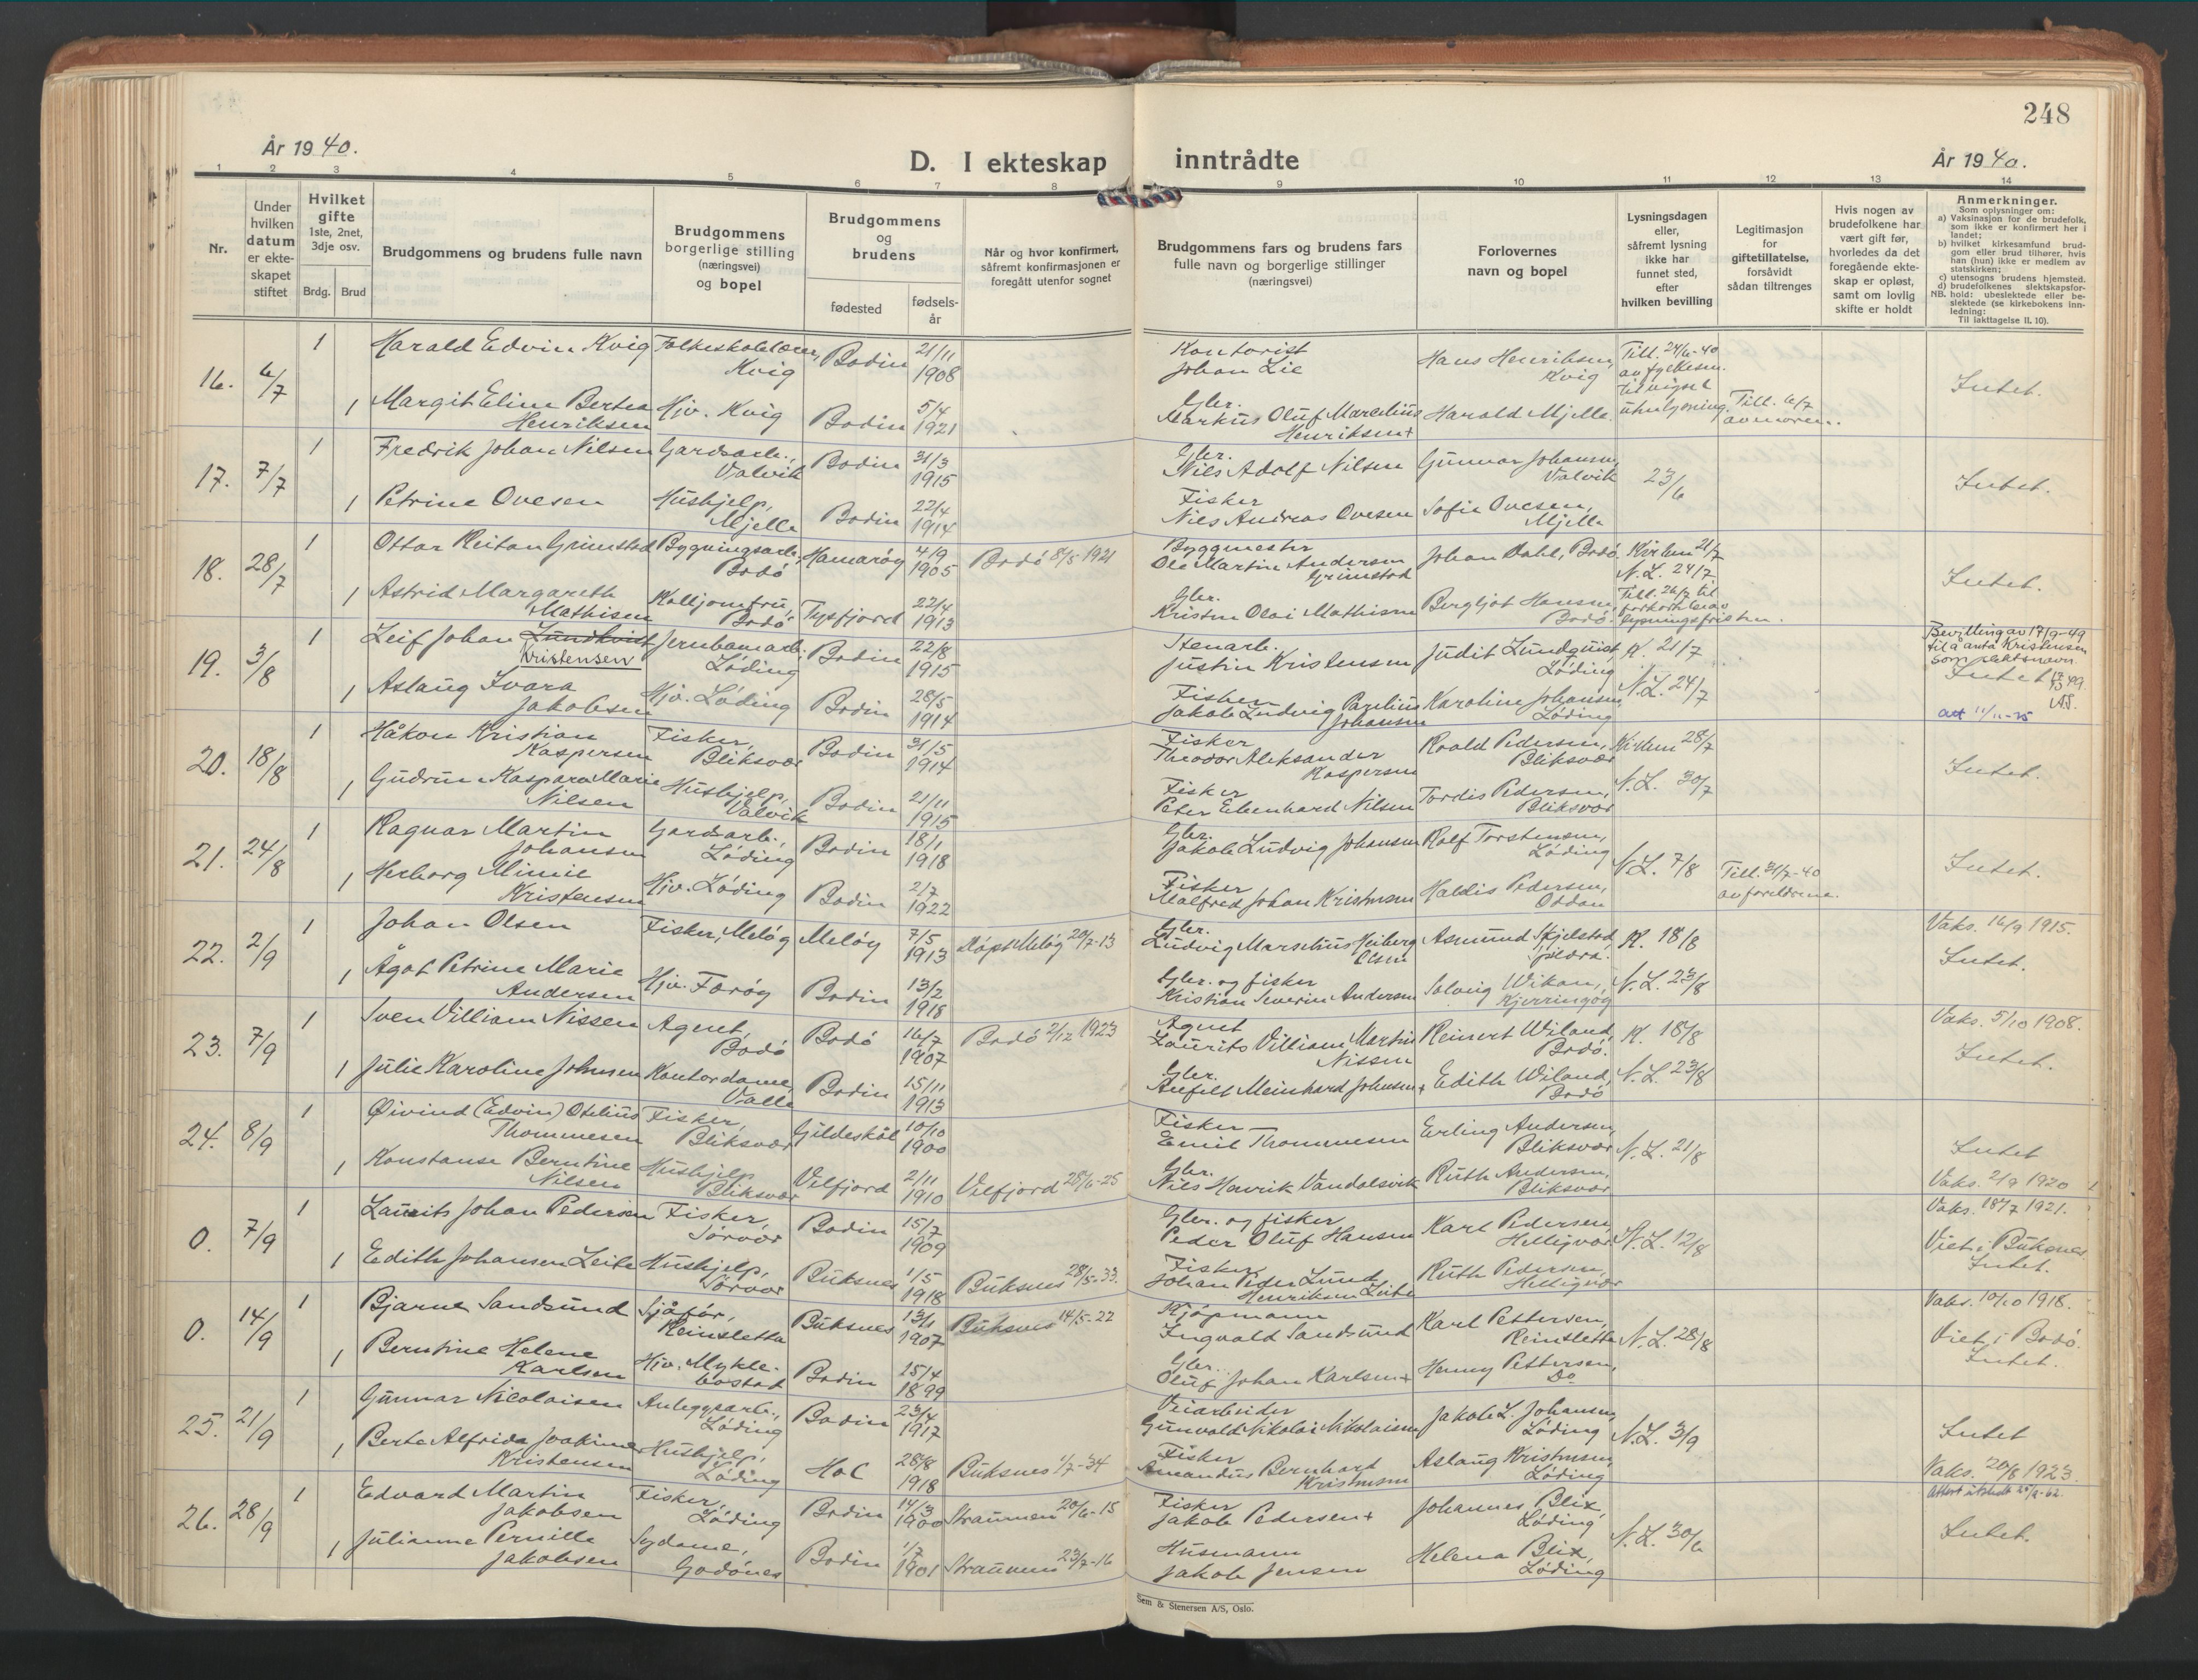 248
År 1940.
D. I ekteskap inntrådte
År 1940.
1 2 3 4 5 6 7 8 9 10 11 12 13 14
Nr.
Under
hvilken
datum
er ekte-
skapet
stiftet
Hvilket
gifte
1ste, 2net,
3dje osv.
Brdg. Brud
Brudgommens og brudens fulle navn
Brudgommens
borgerlige stilling
(næringsvei)
og bopel
Brudgommens
og
brudens
fødested
fødsels-
år
Når og hvor konfirmert,
såfremt konfirmasjonen er
foregått utenfor sognet
Brudgommens fars og brudens fars
fulle navn og borgerlige stillinger
(næringsvei)
Forlovernes
navn og bopel
Lysningsdagen
eller,
såfremt lysning
ikke har
funnet sted,
efter
hvilken bevilling
Legitimasjon
for
giftetillatelse,
forsåvidt
sådan tiltrenges
Hvis nogen av
brudefolkene har
vært gift før,
hvorledes da det
foregående ekte-
skap er opløst,
samt om lovlig
skifte er holdt
Anmerkninger.
Som oplysninger om:
a) Vaksinasjon for de brudefolk,
som ikke er konfirmert her i
landet;
b) hvilket kirkesamfund brud-
gom eller brud tilhører, hvis
han (hun) ikke er medlem av
statskirken;
c) utensogns brudens hjemsted.
d) brudefolkenes slektskapsfor-
NB. hold: ubeslektede eller be-
slektede (se kirkebokens inn-
ledning:
Til Iakttagelse II. 10).
16. 6/7
1 Harald Edvin Kvig Folkeskolelærer, Kvig Bodin 21/11 1908
Kontorist
Johan Lie
Hans Henriksen, Kvig
Till. 24/6-40
av fylkesm.
til vigsel
uten lysning.
1 Margit Eline Bertea
Henriksen
Hjv. Kvig Bodin 5/4 1921
Gbr.
Markus Oluf Marelius
Henriksen +
Harald Mjelle.
Till. 6/7
av moren.
Intet.
17. 7/7
1 Fredrik Johan Nilsen Gardsarb., Valvik Bodin 31/3 1915
Gbr.
Nils Adolf Nilsen
Gunnar Johansen
Valvik
23/6
1 Petrine Ovesen Hushjelp, Mjelle Bodin 22/4 1914
Fisker
Nils Andreas Ovesen
Sofie Ovesen,
Mjelle
Intet.
18. 28/7
1 Ottar Reitan Grimstad Bygningsarb., Bodö Hamaröy 4/9 1905 Bodö 8/5 1921
Byggmester
Ole Martin Andersen
Grimstad
Johan Dahl, Bodö
Kirken 21/7
N.L. 24/7
1 Astrid Margareth
Mathisen
Bodö Tysfjord 22/4 1913
Gbr.
Kristen Olai Mathisen
Bergljot Hansen,
Bodö.
Till. 26/7 til
lysningsfristen.
Intet.
19. 3/8
1 Leif Johan Lundkvist
Kristensen
Jernbanearb. Löding Bodin 22/8 1915
Stenarb.
Justin Kristensen
Judit Lundquist,
Löding
K. 21/7
Bevilling av 17/9-49
til å anta Kristensen
som slektsnavn
1 Aslaug Ivara
Jakobsen
Hjv. Löding Bodin 28/5 1914
Fisker
Jakob Ludvig Parelius
Johansen
Karoline Johansen
Löding
N.L. 24/7
Intet
20. 18/8
1 Håkon Kristian
Kaspersen
Fisker, Bliksvær Bodin 31/5 1914
Fisker
Theodor Aleksander
Kaspersen
Roald Pedersen,
Bliksvær
Kirken 28/7
1 Gudrun Kaspara Marie
Nilsen
Hushjelp, Valvik Bodin 21/11 1915
Fisker
Peter Ebenhard Nilsen
Tordis Pedersen,
Bliksvær
N.L. 30/7
Intet.
21. 24/8
1 Ragnar Martin
Johansen
Gardsarb., Löding Bodin 18/1 1918
Gbr.
Jakob Ludvig Johansen
Rolf Torstensen,
Löding
N.L. 7/8
1 Herborg Minnie
Kristensen
Hjv. Löding Bodin 2/7 1922
Fisker
Malfred Johan Kristensen
Haldis Pedersen,
Oddan
Till. 31/7-40
av foreldrene.
Intet.
22. 2/9
1 Johan Olsen Fisker, Melöy Melöy 7/5 1913
Gbr.
Ludvig Marselius Heiberg
Olsen
Asmund Skjelstad,
K. 18/8
Vaks. 16/9 1915.
1 Ågot Petrine Marie
Andersen
Hjv. Færöy Bodin 13/2 1918
Gbr. og fisker
Kristian Severin Andersen
Solveig Wikan,
Kjerringöy
N.L. 23/8
Intet.
23. 7/9
1 Sven Villiam Nissen Agent, Bodö Bodö 16/7 1907 Bodö 2/12 1923
Agent
Laurits Villiam Martin
Nissen
Reinert Wiland,
Bodö.
K. 18/8
Vaks. 5/10 1908.
1 Julie Karoline Johnsen Kontordame, Valle Bodin 15/11 1913
Gbr.
Anfilt Meinhard Johnsen +
Edith Wiland,
Bodö
N.L. 23/8
Intet.
24. 8/9
1 Øivind (Edvin) Otelius
Thommesen
Fisker, Bliksvær Gildeskål 10/10 1900
Fisker
Emil Thommesen
Erling Andersen,
Bliksvær
N.L. 21/8
Intet
1 Konstanse Berntine
Nilsen
Hushjelp, Bliksvær Velfjord 2/11 1910 Velfjord 28/6-25
Gbr.
Nils Henrik Vandalsvik
Ruth Andersen,
Bliksvær
Vaks. 2/9 1920
0. 7/9
1 Laurits Johan Pedersen Fisker, Sörvær Bodin 15/7 1909
Gbr. og fisker
Peder Oluf Hansen
Karl Pedersen
Helligvær
N.L. 12/8
Vaks. 18/7 1921.
1 Edith Johansen Leite Hushjelp, Sörvær Buksnes 1/5 1918 Buksnes 28/5-33.
Fisker
Johan Peder Lund
Henriksen Leite
Ruth Pedersen,
Helligvær
Viet i Buksnes
Intet.
0. 14/9
1 Bjarne Sandsund Sjåför, Reinsletta Buksnes 13/1 1907 Buksnes 14/5-22
Kjöpmann
Ingvald Sandsund
Karl Pettersen,
Reinsletta
N.L. 28/8
Vaks. 10/10 1918.
Viet i Bodö.
1 Berntine Helene
Karlsen
Hjv. Mykle-
bostad
Bodin 15/4 1899
Gbr.
Oluf Johan Karlsen +
Henny Pettersen,
Do
Intet.
25. 21/9
1 Gunnar Nicolaisen Anleggsarb., Löding Bodin 23/4 1917
Veiarbeider
Gunvald Nikolai Nikolaisen
Jakob L. Johansen,
Löding
N.L. 3/9
Intet
1 Berta Alfrida Joakime
Kristensen
Hushjelp, Löding Hol 28/8 1918 Buksnes 1/7-34
Fisker
Amandus Bernhard
Kristensen
Aslaug Kristensen,
Löding
Vaks. 20/8 1923.
26. 28/9
1 Edvard Martin
Jakobsen
Fisker, Löding Bodin 14/3 1900 Straumen 20/6-15
Fisker
Jakob Pedersen +
Johannes Blix,
Löding
N.L. 30/6
1 Julianne Pernille
Jakobsen
Sydame, Godönes Bodin 1/7 1901 Straumen 23/7-16
Husmann
Jakob Jensen
Helena Blix,
Löding
Intet.
Sem & Stenersen A/S, Oslo.